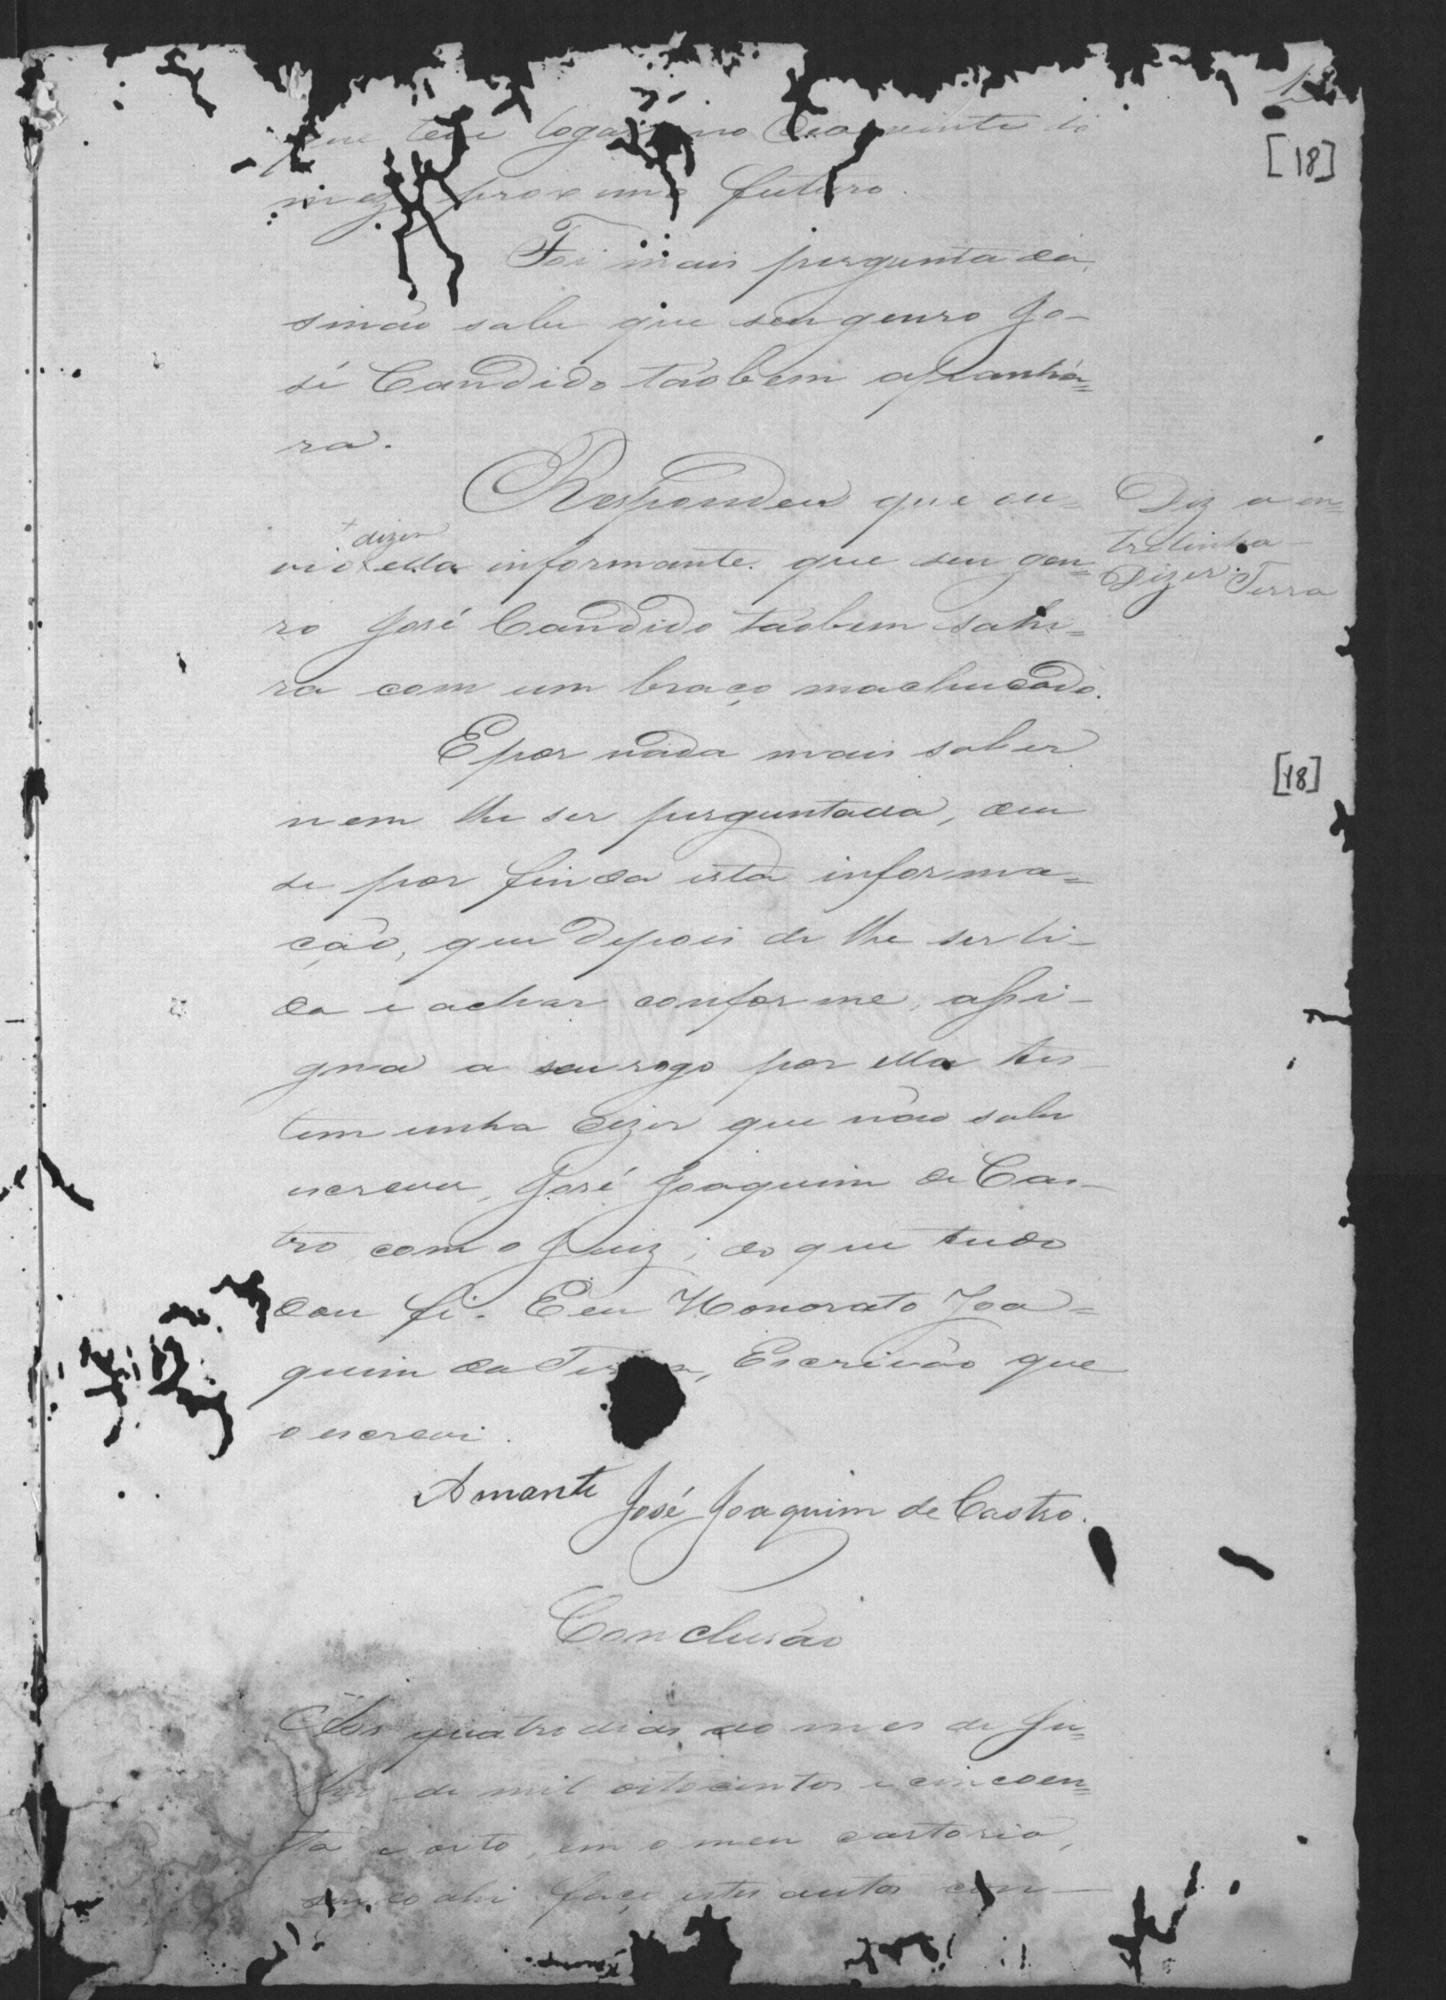 [18]
que teve logar no dia vinte do
mez proximo futuro.
Foi mais perguntada,
sinão sabe que seu genro Jo-
sé Candido taobem apanha=
ra.
Respondeu que ou=
vio + dizer ella informante que seu gen=
ro José Candido taobem sahi=
ra com um braço machucado.
Diz a en=
trelinha -
Dizer. Terra
E por nada mais saber
[18]
nem lhe ser perguntada, deu
se por finda esta informa=
ção, que depois de lhe ser li-
da e achar conforme, assi-
gna a seu rogo por ella tes-
temunha dizer que não sabe
escrever, José Joaquim de Cas-
tro, com o Juiz; do que tudo
dou fé. E eu Honorato Joa=
quim da Terra, Escrivão que
o escrevi.
Amante José Joaquim de Castro.
Conclusão
Aos quatro dias do mes de Ju=
lho de mil oitocentos e cincoen=
ta e oito, em o meu cartorio,
sendo ahi faço estes autos con-